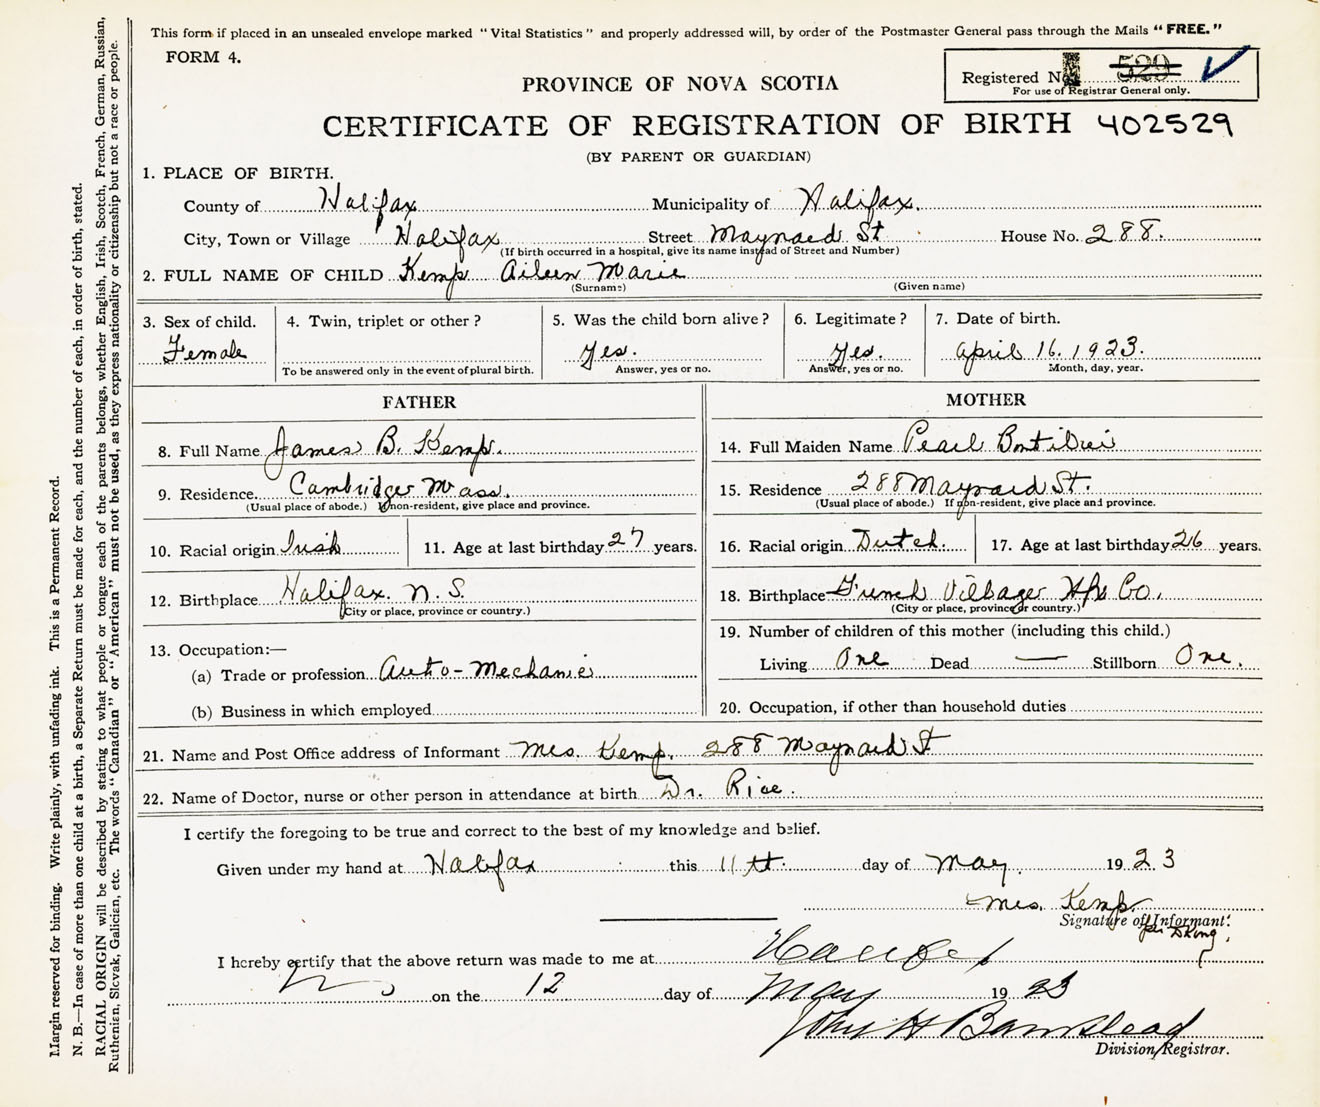 This form if placed in an unsealed envelope marked "Vital Statistics" and properly addressed will, by order of the Postmaster General pass through the Mails "FREE."
FORM 4.
Registered No. 529
For use of Registrar General only.
PROVINCE OF NOVA SCOTIA
CERTIFICATE OF REGISTRATION OF BIRTH 402529
(BY PARENT OR GUARDIAN)
1. PLACE OF BIRTH.
County of Halifax Municipality of Halifax.
City, Town or Village Halifax Street Maynard St House No. 288.
(If birth occurred in a hospital, give its name instead of Street and Number)
2. FULL NAME OF CHILD Kemp Aileen Marie
(Surname) (Given name)
3. Sex of child. 4. Twin, triplet or other? 5. Was the child born alive? 6. Legitimate? 7. Date of birth.
Female Yes. Yes. April 16. 1923.
To be answered only in the event of plural birth. Answer, yes or no. Answer, yes or no. Month, day, year.
FATHER
8. Full Name James B. Kemp.
9. Residence. Cambridge Mass.
(Usual place of abode.) If non-resident, give place and province.
10. Racial origin Irish 11. Age at last birthday 27 years.
12. Birthplace Halifax. N.S.
(City or place, province or country.)
13. Occupation:—
(a) Trade or profession Auto-Mechanic
(b) Business in which employed
MOTHER
14. Full Maiden Name Pearl Boutilier
15. Residence 288 Maynard St.
(Usual place of abode.) If non-resident, give place and province.
16. Racial origin Dutch. 17. Age at last birthday 26 years.
18. Birthplace French Village Hfx Co.
(City or place, province or country.)
19. Number of children of this mother (including this child.)
Living One Dead — Stillborn One.
20. Occupation, if other than household duties
21. Name and Post Office address of Informant Mrs. Kemp. 288 Maynard St
22. Name of Doctor, nurse or other person in attendance at birth Dr. Rice.
I certify the foregoing to be true and correct to the best of my knowledge and belief.
Given under my hand at Halifax this 11th day of May. 1923
Mrs. Kemp
Signature of Informant.
I hereby certify that the above return was made to me at Halifax
on the 12 day of May 1923
John H Barnstead
Division Registrar.
Margin reserved for binding. Write plainly, with unfading ink. This is a Permanent Record.
N. B.—In case of more than one child at a birth, a Separate Return must be made for each, and the number of each, in order of birth, stated.
RACIAL ORIGIN will be described by stating to what people or tongue each of the parents belongs, whether English, Irish, Scotch, French, German, Russian,
Ruthenian, Slovak, Galician, etc. The words "Canadian" or "American" must not be used, as they express nationality or citizenship but not a race or people.